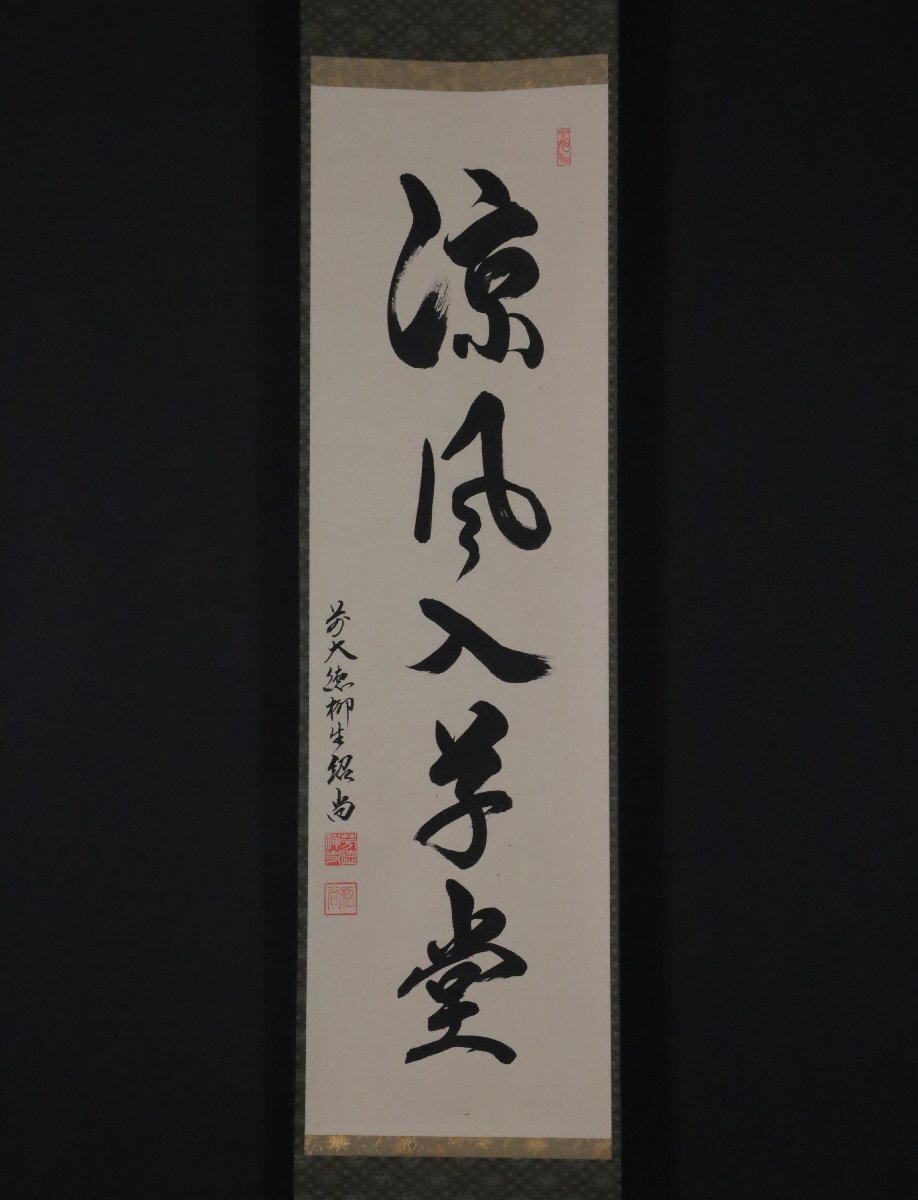 涼風入草堂
前大徳柳生紹尚
紹尚